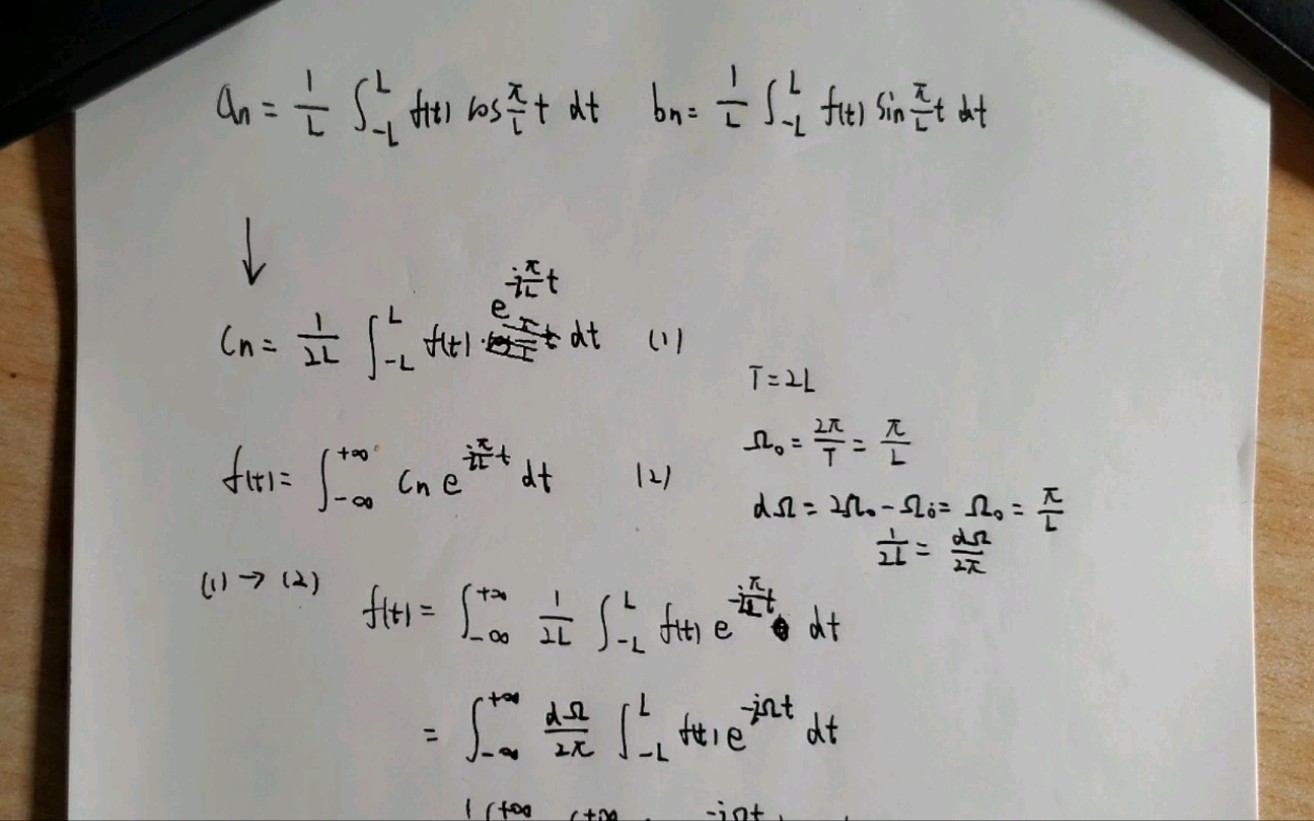 aₙ = 1/L ∫_{-L}^{L} f(t) cos π/L t dt   bₙ = 1/L ∫_{-L}^{L} f(t) sin π/L t dt
↓
Cₙ = 1/2L ∫_{-L}^{L} f(t) · e^{-j π/L t} dt   (1)
T = 2L
Ω₀ = 2π/T = π/L
f(t) = ∫_{-∞}^{+∞} Cₙ e^{j π/L t} dt   (2)
dΩ = 2Ω₀ - Ω₀ = Ω₀ = π/L
1/2L = dΩ/2π
(1) → (2)   f(t) = ∫_{-∞}^{+∞} 1/2L ∫_{-L}^{L} f(t) e^{-j π/L t} dt
= ∫_{-∞}^{+∞} dΩ/2π ∫_{-L}^{L} f(t) e^{-jΩt} dt